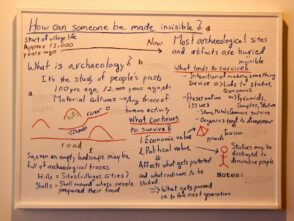 How can someone be made invisible?
Start of village life
Approx 12,000
years ago
Now
Most archaeological sites
and artifacts are buried
invisible
What tends to survive?
b
What is archaeology?
It's the study of people's pasts
100 yrs ago, 12,000 years ago, etc
a
Material cultures → Any trace of
human activity
Intention of making something
survive → Links to status,
economics
Preservation → Pyramids,
issues
Temples, Statues
Stone, Metals, Ceramics survive
Organics tend to disappear
hills
river
road
What continues
to survive?
1. Economic value
2. Political value
Tourism
Affects what gets protected
and what continues to be
studied
→ What gets passed
on to the next generation
Statues may be
destroyed to
demoralise people
So, even an empty landscape may be
full of archaeological traces
Hills = Sites (villages cities)
Shells = Shell mound where people
prepared their food
Notes: